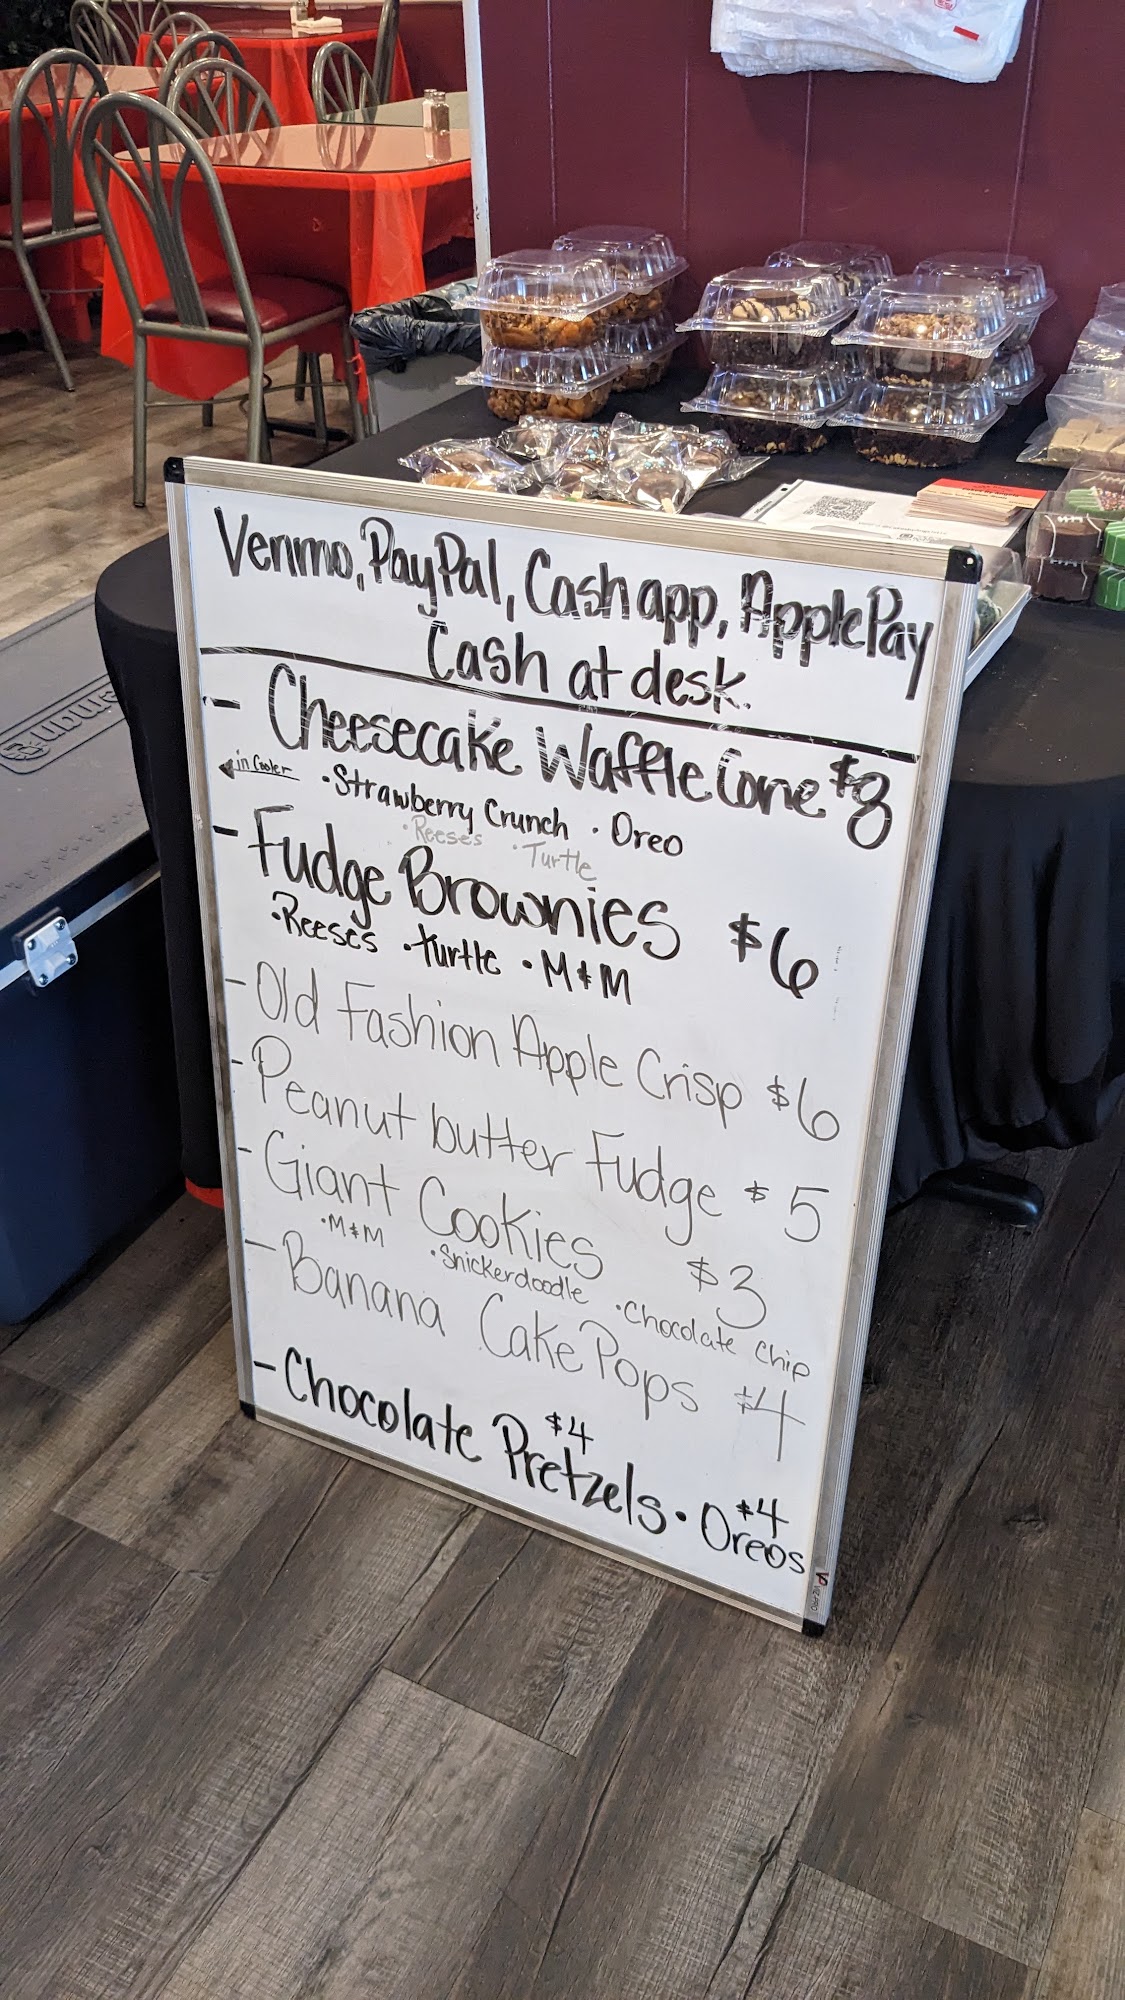 Venmo, PayPal, Cash app, Apple Pay
Cash at desk.
- Cheesecake Waffle Cone $8
in Cooler
• Strawberry Crunch • Oreo
• Reese's • Turtle
- Fudge Brownies $6
• Reeses • turtle • M & M
- Old Fashion Apple Crisp $6
- Peanut butter Fudge $5
- Giant Cookies $3
• M & M • Snickerdoodle • Chocolate Chip
- Banana Cake Pops $4
- Chocolate Pretzels $4 • Oreos $4